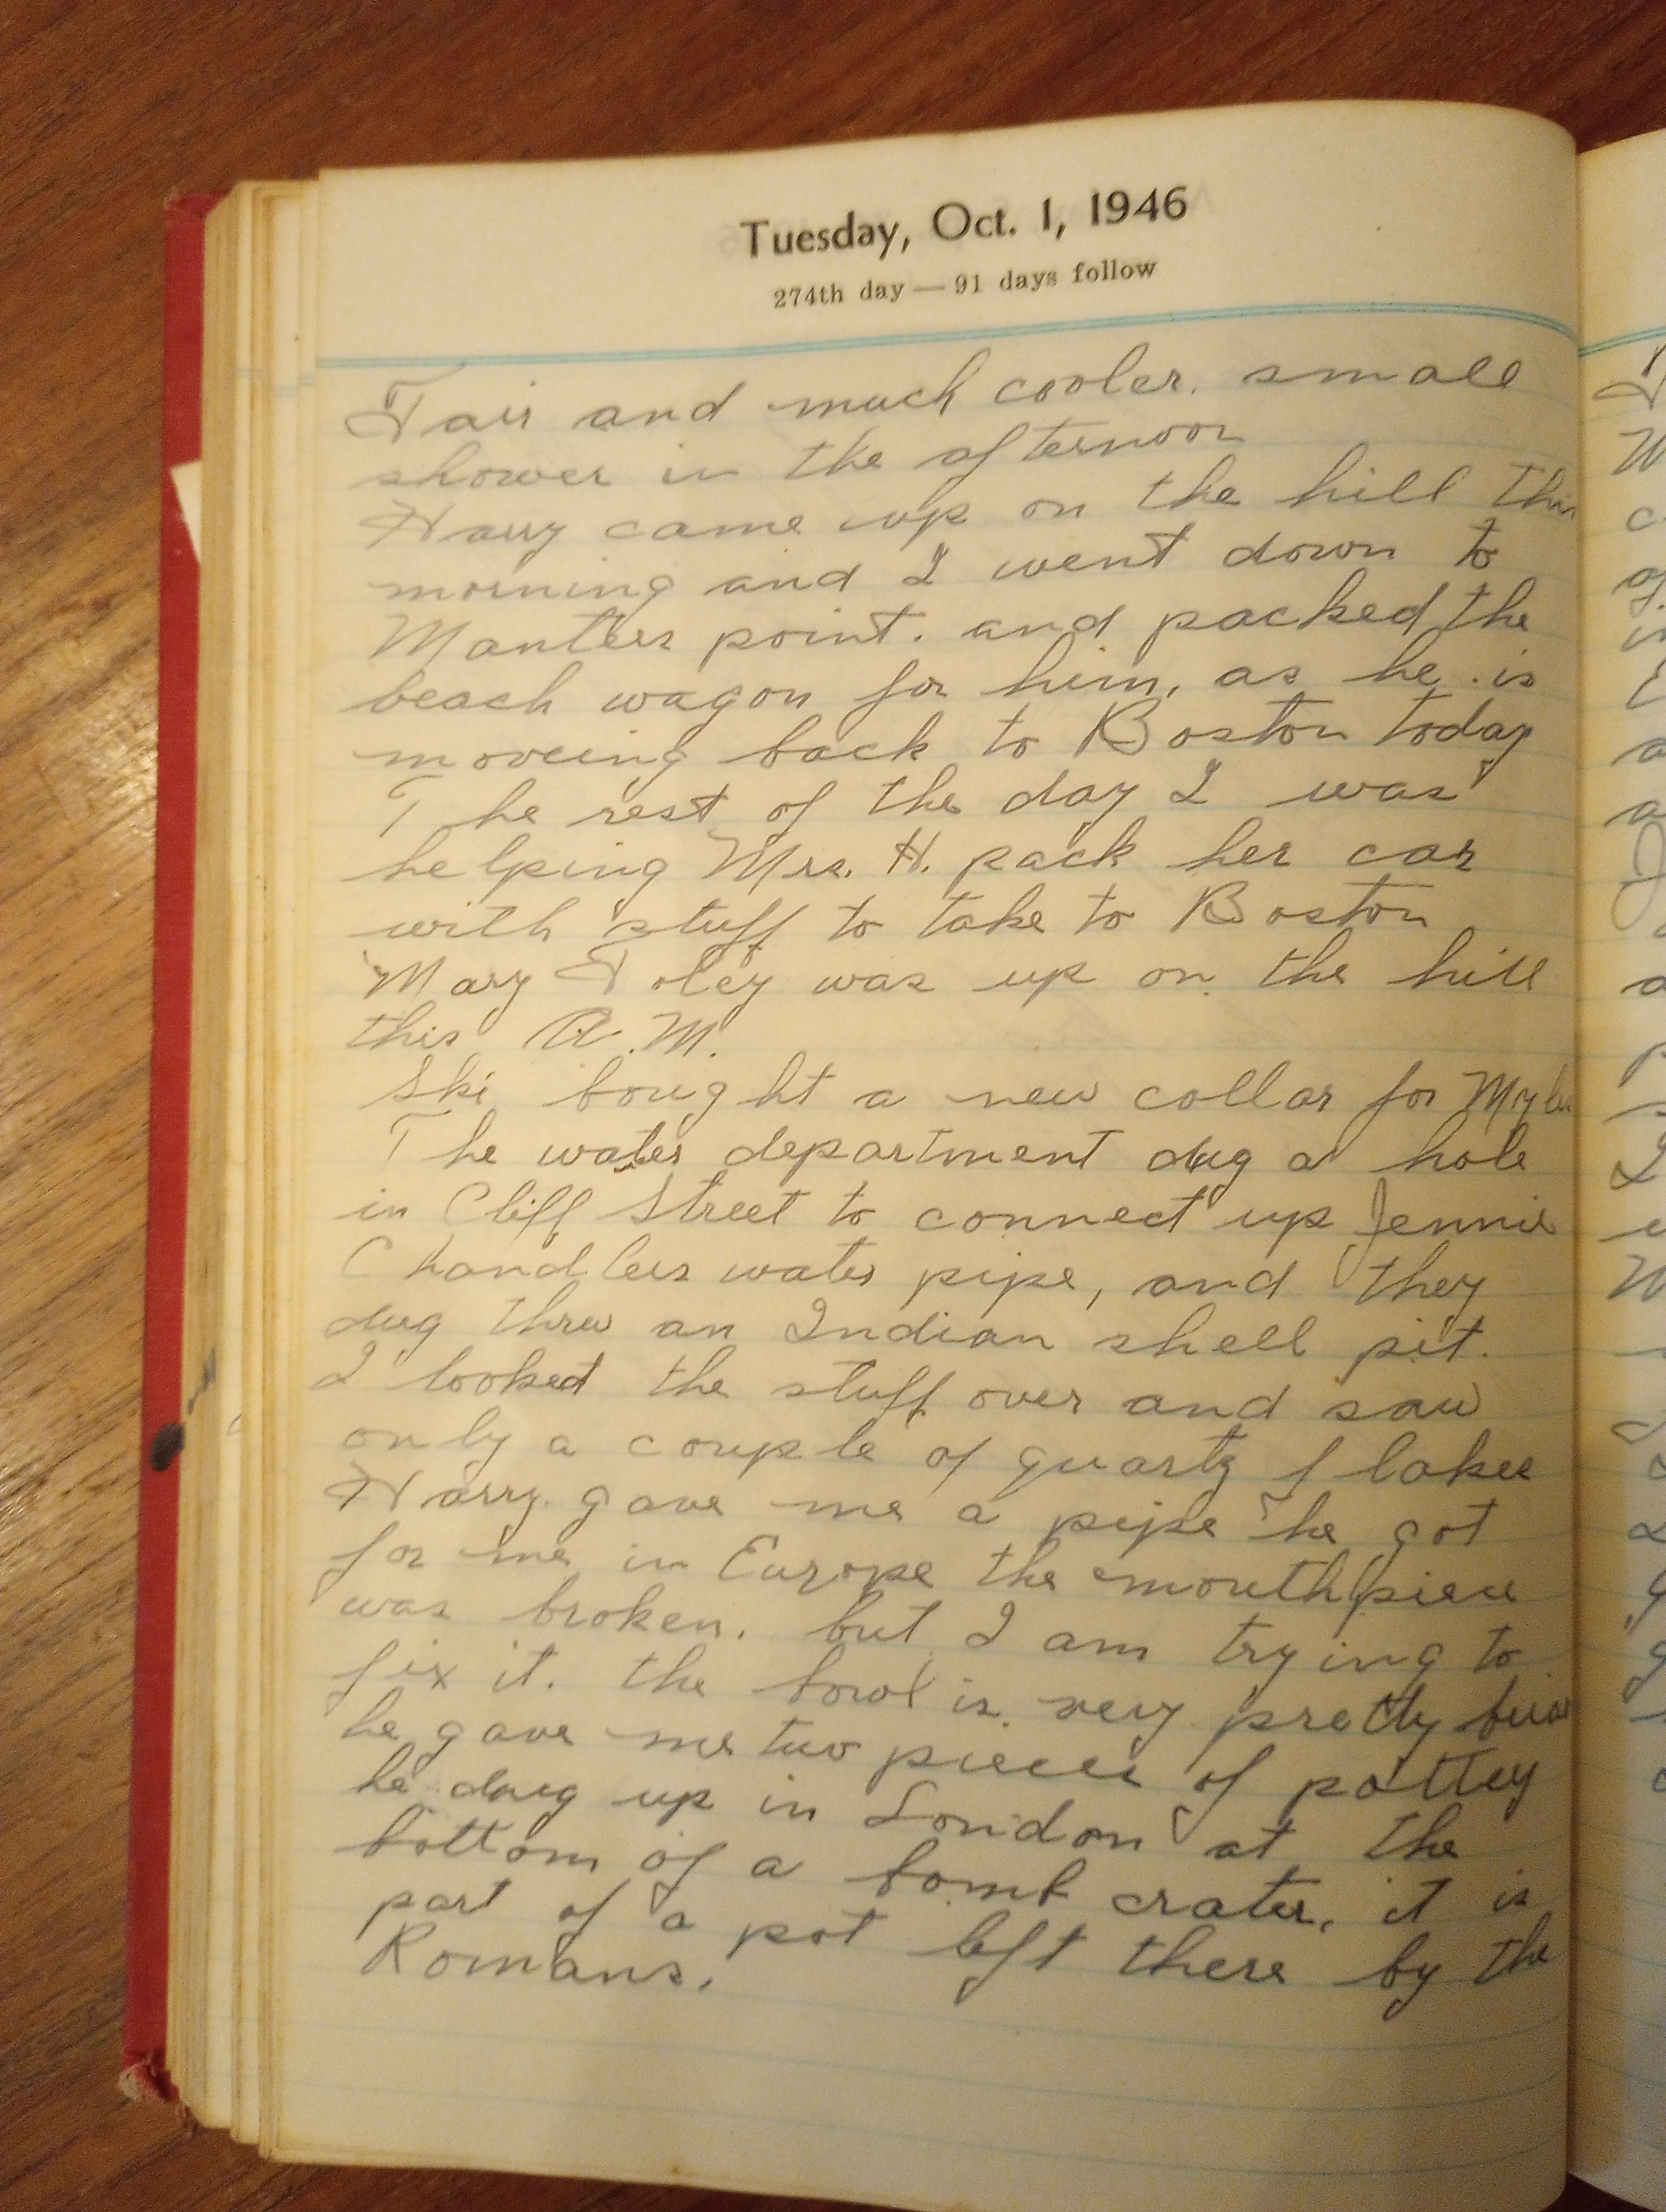 Tuesday, Oct. 1, 1946
274th day — 91 days follow
Fair and much cooler. small
shower in the afternoon
Harry came up on the hill this
morning and I went down to
Manters point. and packed the
beach wagon for him, as he is
moveing back to Boston today
The rest of the day I was
helping Mrs. H. pack her car
with stuff to take to Boston
Mary Foley was up on the hill
this A.M.
Ski bought a new collar for
The water department dug a hole
in Cliff Street to connect up Jennie
Chandlers water pipe, and they
dug threw an Indian shell pit.
I looked the stuff over and saw
only a couple of quartz flakes
Harry gave me a pipe he got
for me in Europe the mouthpiece
was broken. but I am trying to
fix it. the bowl is very pretty
he gave me two pieces of pottey
he dug up in London at the
bottom of a bomb crater, it is
part of a pot left there by the
Romans.